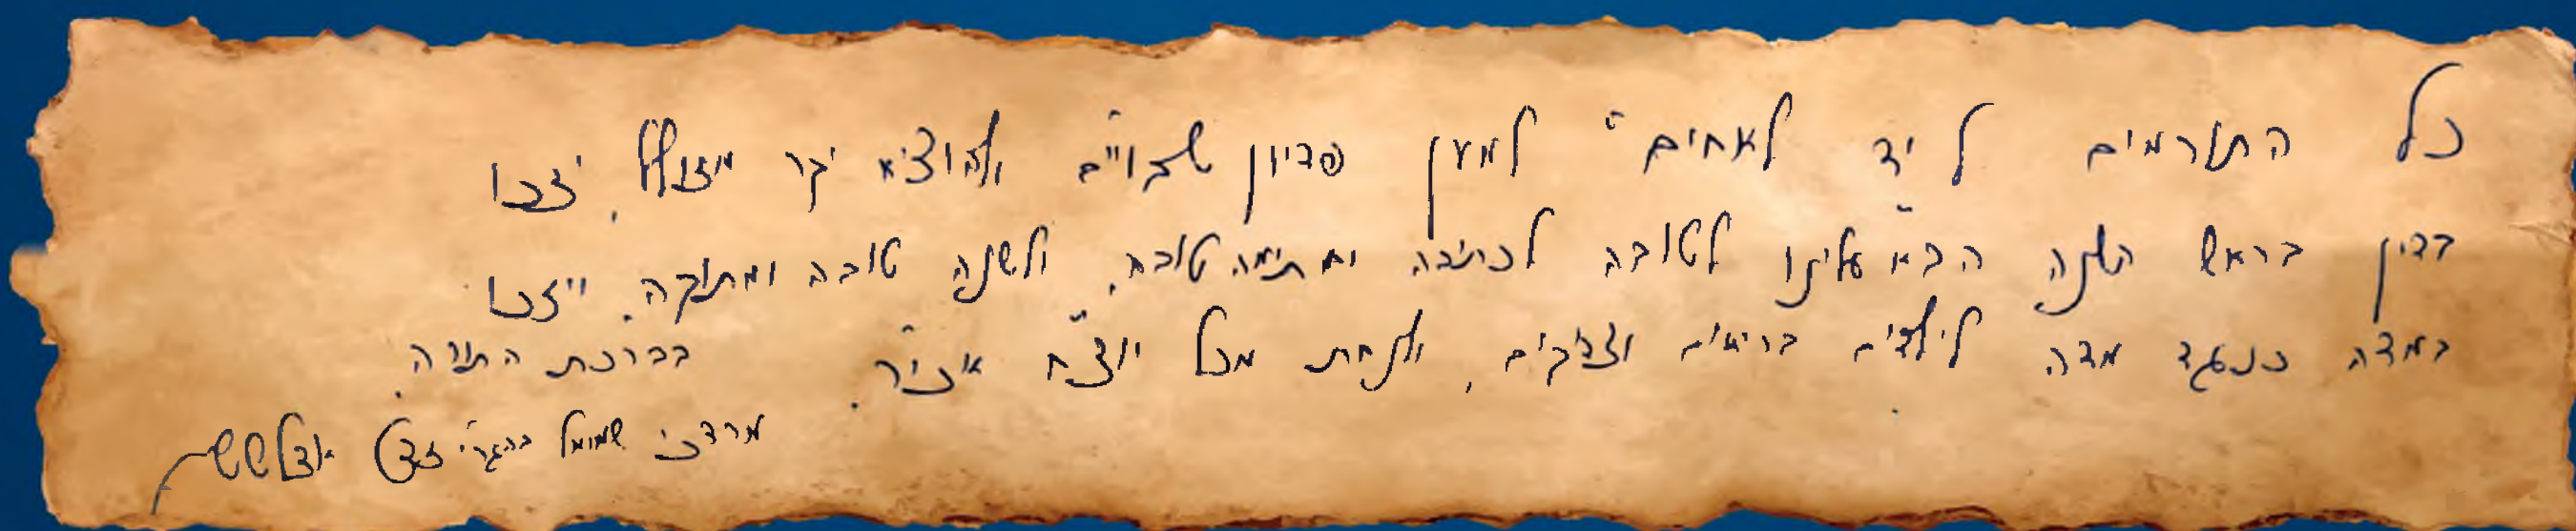 כל התורמים ל יד לאחים" למען פדיון שבויים ולהוציא יקר מזולל, יזכו
בדין בראש השנה הבא עלינו לטובה לכתיבה וחתימה טובה, ולשנה טובה ומתוקה. ויזכו
במדה כנגד מדה לילדים בריאים וצדיקים, ולנחת מכל יוצ"ח אכי"ר. בברכת התורה.
מרדכי שמואל בהגר"י זצ"ל אדלשטיין